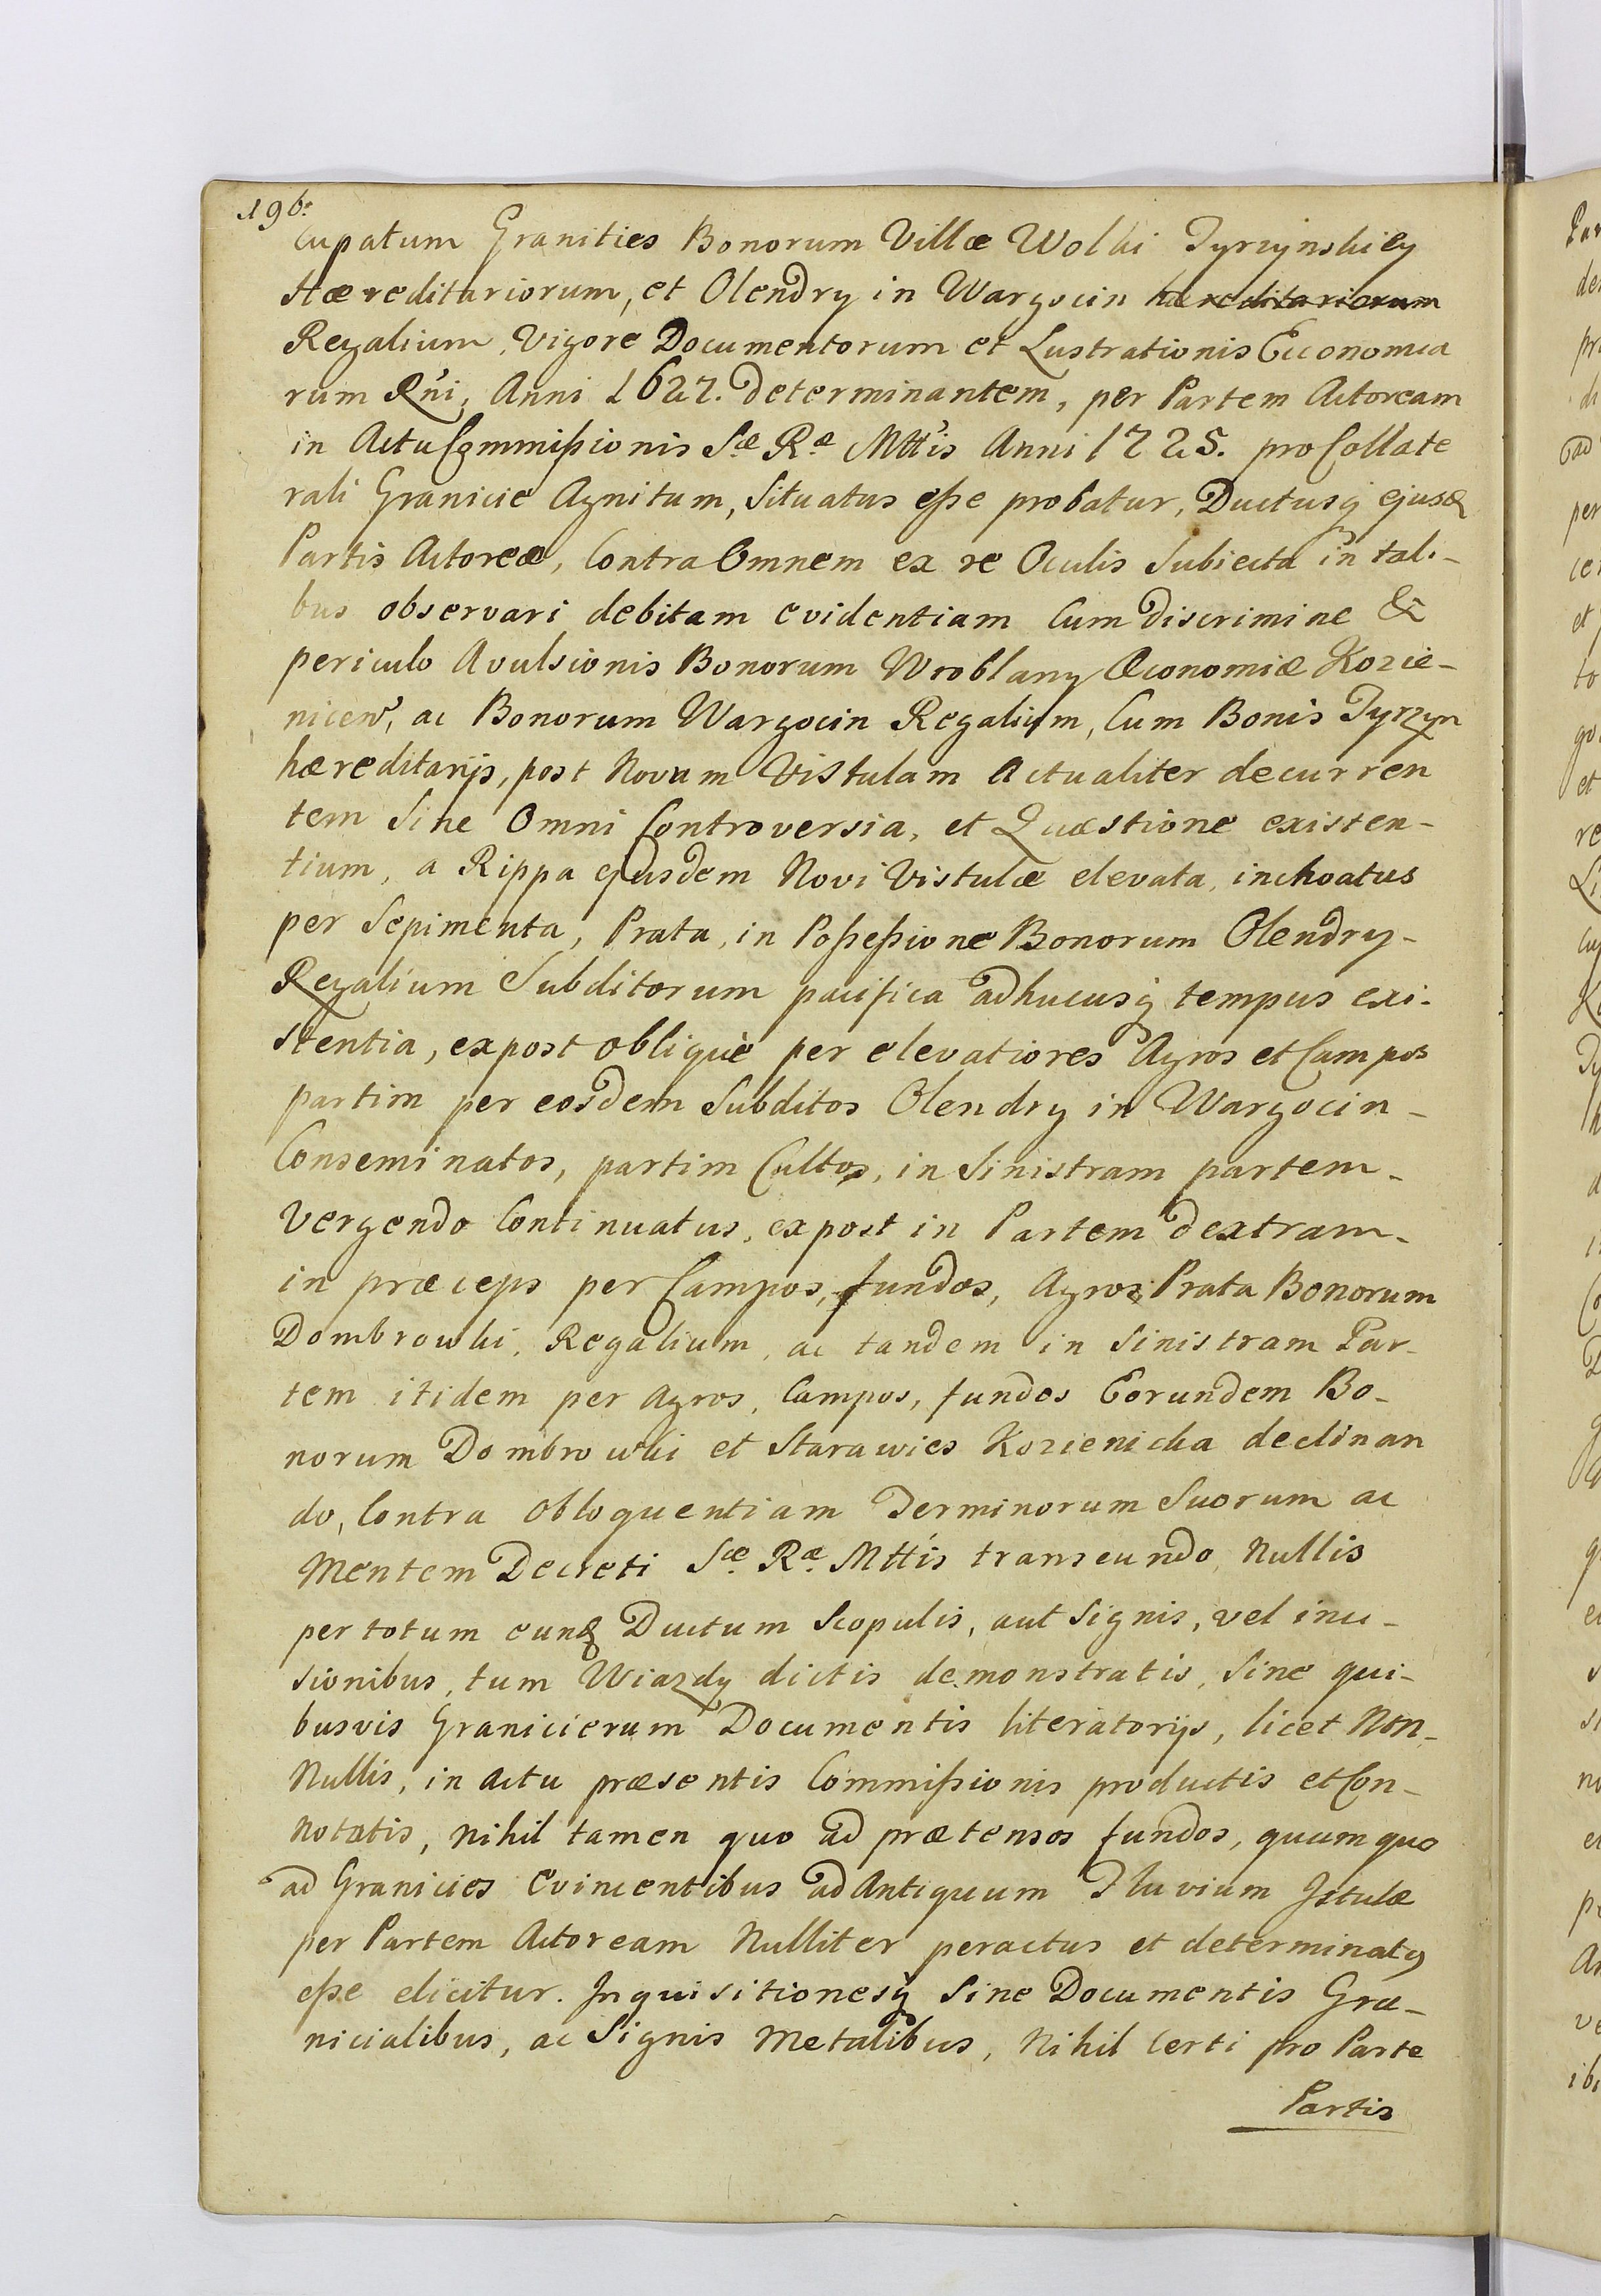 196.
cupatum Granities Bonorum Villæ Wolki Tyrzynskiey
Hæreditariorum, et Olendry in Wargocin hæreditariorum
Regalium, Vigore Documentorum et Lustrationis Economia
rum Rn̄i, Anni 1627. determinantem, per Partem Actoream
in Actu Commißionis Sæ Ræ Mttis Anni 1725. pro Collate
rali Granicie Agnitum, Situatus eße probatur, Ductusq ejusd
Partis Actoreæ, Contra Omnem ex re Oculis Subiecta in tali-
bus observari debitam evidentiam Cum Discrimine &
periculo Avulsionis Bonorum Wroblany Œconomiæ Kozie-
nicen, ac Bonorum Wargocin Regalium, Cum Bonis Tyrzyn
hæreditarijs, post Novum Vistulam Actualiter decurren
tem Sine Omni Controversia, et Quæstione existen-
tium, a Rippa ejusdem Novi Vistulæ elevata, inchoatus
per Sepimenta, Prata, in Poßeßione Bonorum Olendry-
Regalium Subditorum pacifica adhucusq tempus exi-
stentia, expost obliquè per elevatiores Agros et Campos
partim per eosdem Subditos Olendry in Wargocin-
Conseminatos, partim Cultos, in Sinistram partem-
Vergendo Continuatus, expost in Partem dextram-
in præceps per Campos, fundos, Agros, Prata Bonorum
Dombrowki, Regalium, ac tandem in Sinistram Par-
tem itidem per Agros, Campos, fundos Eorundem Bo-
norum Dombrowki et Starawies Kozienicka declinan
do, Contra Obloquentiam Terminorum Suorum ac
Mentem Decreti Sæ. Ræ. Mttis transeundo, Nullis
per totum eund Ductum Scopulis, aut Signis, vel inci-
sionibus, tum Wiazdy dictis demonstratis, Sine qui-
busvis Granicierum Documentis literatorijs, licet Non-
Nullis, in Actu præsentis Commißionis productis et Con-
notatis, nihil tamen quo ad prætensos fundos, quum quo
ad Granicies Evincentibus ad Antiquum Fluvium Istulæ
per Partem Actoream Nulliter peractus et determinatq
eße elicitur. Inquisitionesq Sine Documentis Gra-
nicialibus, ac Signis Metalibus, Nihil Certi pro Parte
Partis